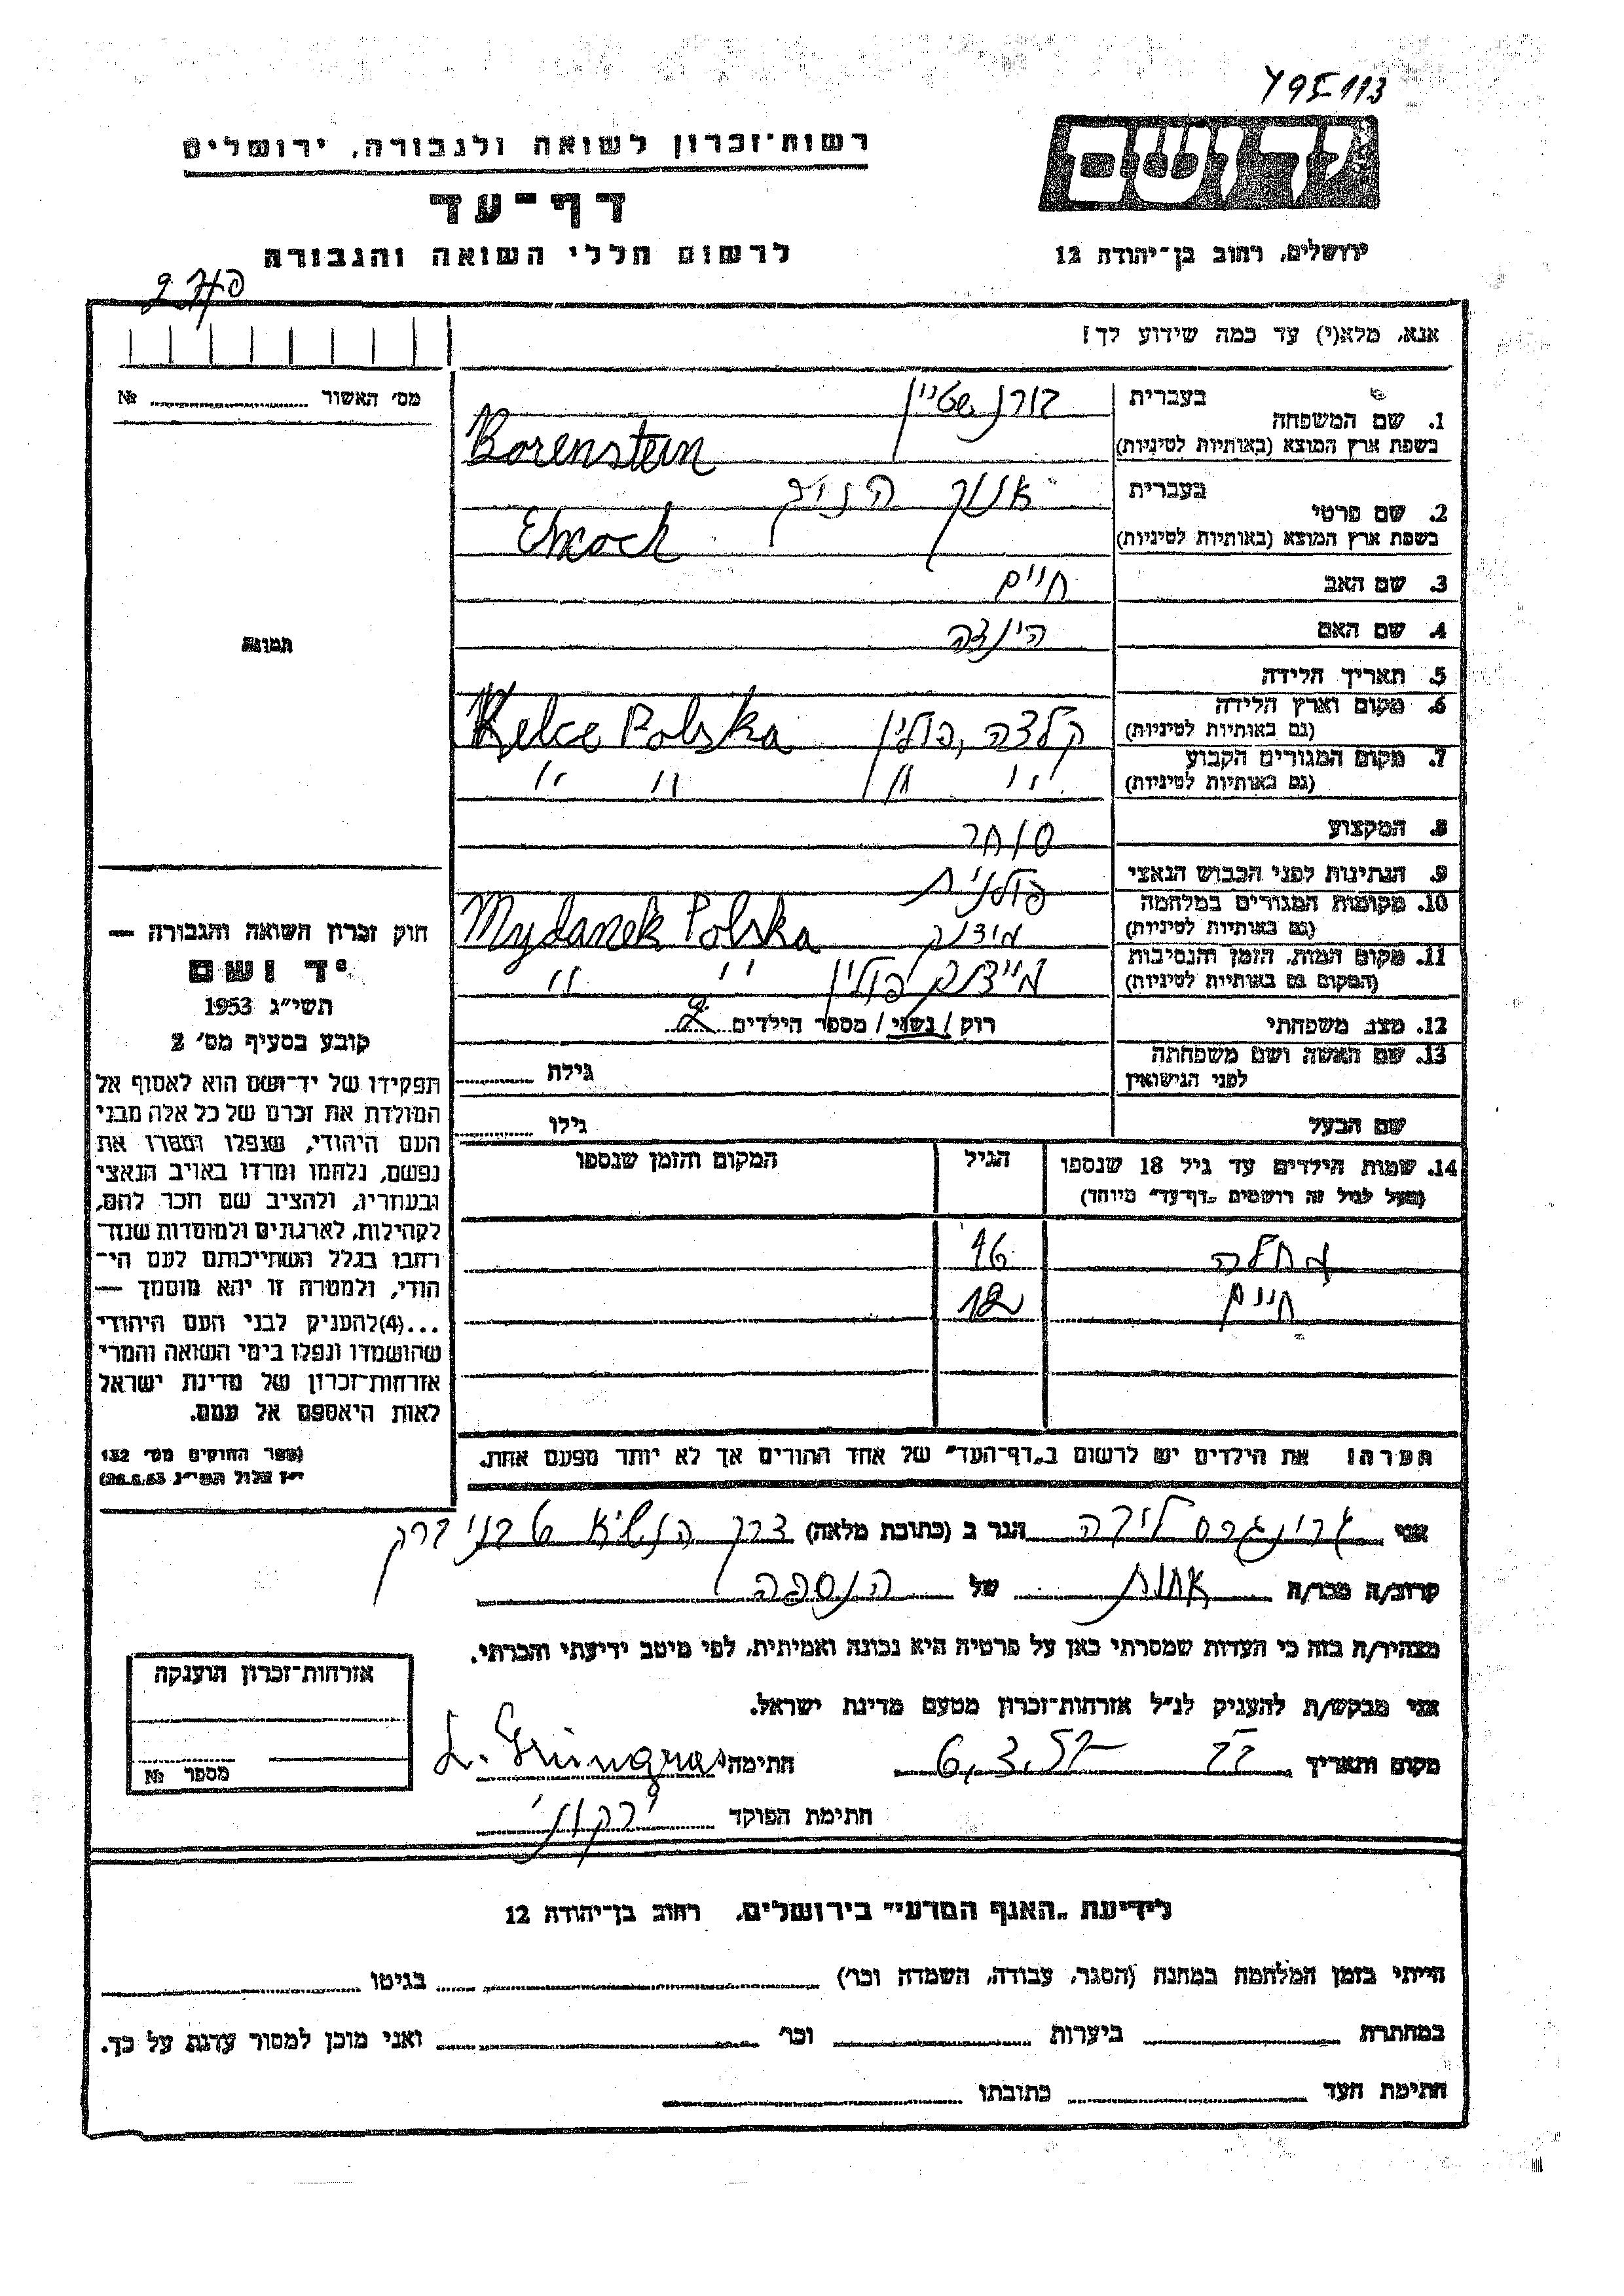 795-113
יד ושם
ירושלים, רחוב בן־יהודה 12
רשות־זכרון לשואה ולגבורה, ירושלים
דף־עד
לרשום חללי השואה והגבורה
אנא, מלא(י) עד כמה שידוע לך!
1. שם המשפחה
בעברית בורנשטיין
בשפת ארץ המוצא (באותיות לטיניות) Borenstein
2. שם פרטי
בעברית הניך
בשפת ארץ המוצא (באותיות לטיניות)
3. שם האב חיים
4. שם האם הינדה
5. תאריך הלידה
6. מקום וארץ הלידה
(גם באותיות לטיניות) קלצה, פולין Kelce Polska
7. מקום המגורים הקבוע
(גם באותיות לטיניות) " " " "
8. המקצוע סוחר
9. הנתינות לפני הכבוש הנאצי פולנית
10. מקומות המגורים במלחמה
(גם באותיות לטיניות) Mydanek Polska
11. מקום המות, הזמן והנסיבות
(המקום גם באותיות לטיניות) מיידנק פולין " "
12. מצב משפחתי רוק / נשוי / מספר הילדים 2
13. שם האשה ושם משפחתה
לפני הנישואין גילה
שם הבעל גילו
14. שמות הילדים עד גיל 18 שנספו
(מעל לגיל זה רושמים "דף־עד" מיוחד)
הגיל
המקום והזמן שנספו
16
חיים 12
הערה: את הילדים יש לרשום ב"דף־העד" של אחד ההורים אך לא יותר מפעם אחת.
מס' האשור №
תמונה
חוק זכרון השואה והגבורה —
יד ושם
תשי"ג 1953
קובע בסעיף מס' 2
תפקידו של יד־ושם הוא לאסוף אל
המולדת את זכרם של כל אלה מבני
העם היהודי, שנפלו ומסרו את
נפשם, נלחמו ומרדו באויב הנאצי
ובעוזריו, ולהציב שם וזכר להם,
לקהילות, לארגונים ולמוסדות שנח־
רבו בגלל השתייכותם לעם הי־
הודי, ולמטרה זו יהא מוסמך —
...(4)להעניק לבני העם היהודי
שהושמדו ונפלו בימי השואה והמרי
אזרחות־זכרון של מדינת ישראל
לאות היאספם אל עמם.
(ספר החוקים מס' 132
י"ז אלול תשי"ג 28.8.53)
אני גרינגרס הגר ב (כתובת מלאה) דרך הנשיא בני ברק
קרוב/ה מכר/ה אחות של הנספה
מצהיר/ה בזה כי העדות שמסרתי כאן על פרטיה היא נכונה ואמיתית, לפי מיטב ידיעתי והכרתי.
אני מבקש/ת להעניק לנ"ל אזרחות־זכרון מטעם מדינת ישראל.
מקום ותאריך 6.3.57 חתימה L. Grüngras
חתימת הפוקד
אזרחות־זכרון הוענקה
מספר №
לידיעת "האגף המדעי" בירושלים, רחוב בן־יהודה 12
הייתי בזמן המלחמה במחנה (הסגר, עבודה, השמדה וכו') בגיטו
במחתרת ביערות וכו' ואני מוכן למסור עדות על כך.
חתימת העד כתובתו